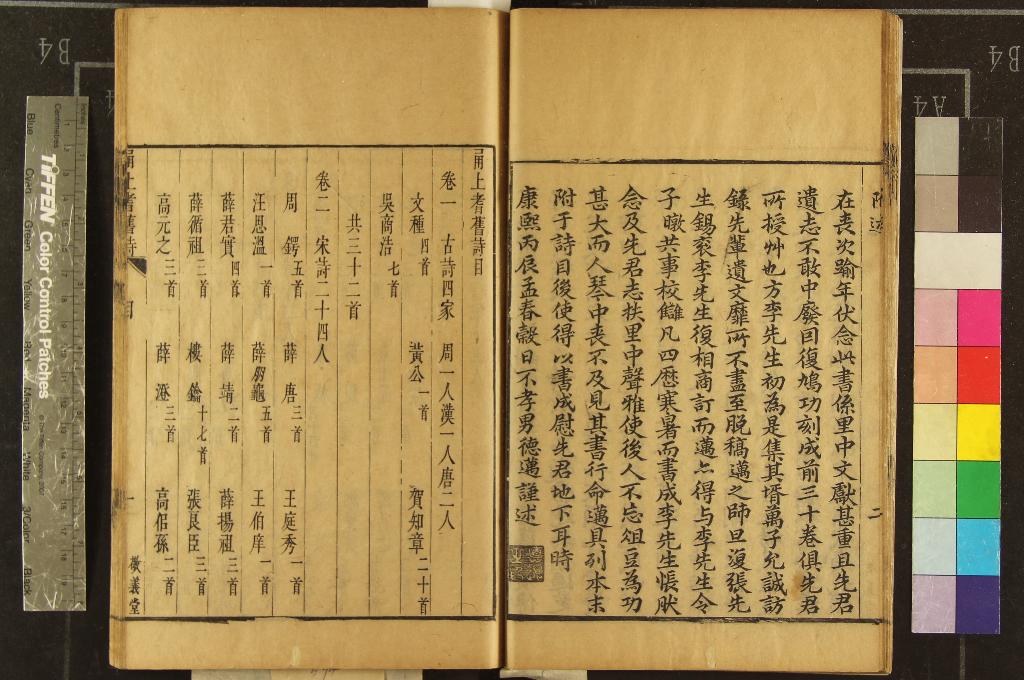 附述 二
在丧次踰年伏念此書係里中文獻甚重且先君
遺志不敢中廢回復鳩功刻成前三十卷俱先君
所授艸也方李先生初為是集其壻萬子允誠訪
録先軰遺文靡所不盡至脫稿邁之師旦復張先
生錫衮李先生復相商訂而邁亦得与李先生令
子暾共事校讎凡四歷寒暑而書成李先生悵肰
念及先君志扶里中聲雅使後人不忘俎豆為功
甚大而人琴中丧不及見其書行命邁具列本末
附于詩目後使得以書成慰先君地下耳時
康熙丙辰孟春穀日不孝男德邁謹述
甬上耆舊詩目
卷一 古詩四家 周一人漢一人唐二人
文種 四首 黃公 一首 賀知章 二十首
吳商浩 七首
共三十二首
卷二 宋詩二十四人
周鍔 五首 薛唐 三首 王庭秀 一首
汪思溫 一首 薛朋龜 五首 王伯庠 一首
薛君實 四首 薛靖 二首 薛揚祖 三首
薛循祖 三首 樓鑰 十七首 張良臣 三首
高元之 三首 薛澄 三首 高佀孫 二首
甬上耆舊詩 目 一 敬義堂
TIFFEN Color Control Patches
Blue
Cyan
Green
Yellow
Red
Magenta
White
3/Color
Black
Centimetres
Inches
B4
A4
A4
B4